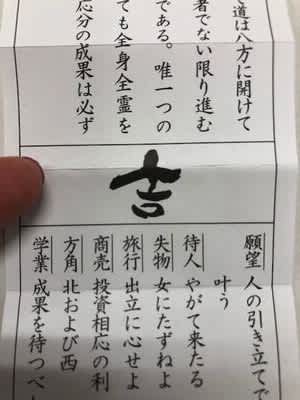 道は八方に開けて
者でない限り進む
である。唯一つの
ても全身全霊を
応分の成果は必ず
吉
願望 人の引き立てで
叶う
待人 やがて来たる
失物 女にたずねよ
旅行 出立に心せよ
商売 投資相応の利
方角 北および西
学業 成果を待つべし